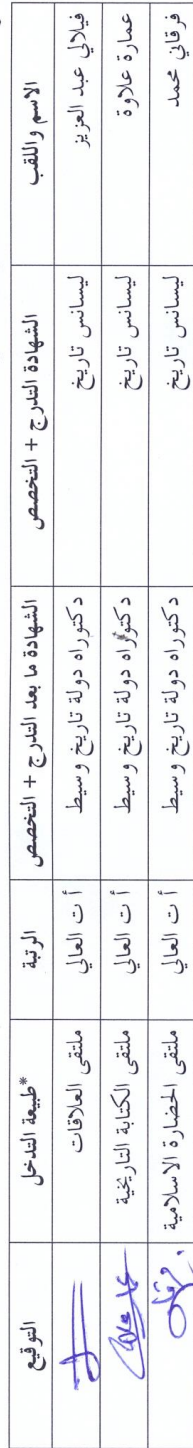 الاسم واللقب الشهادة التدرج + التخصص الشهادة ما بعد التدرج + التخصص الرتبة *طبيعة التدخل التوقيع
فيلالي عبد العزيز ليسانس تاريخ دكتوراه دولة تاريخ وسيط أ ت العالي ملتقى العلاقات
عمارة علاوة ليسانس تاريخ دكتوراه دولة تاريخ وسيط أ ت العالي ملتقى الكتابة التاريخية
فرقاني محمد ليسانس تاريخ دكتوراه دولة تاريخ وسيط أ ت العالي ملتقى الحضارة الاسلامية